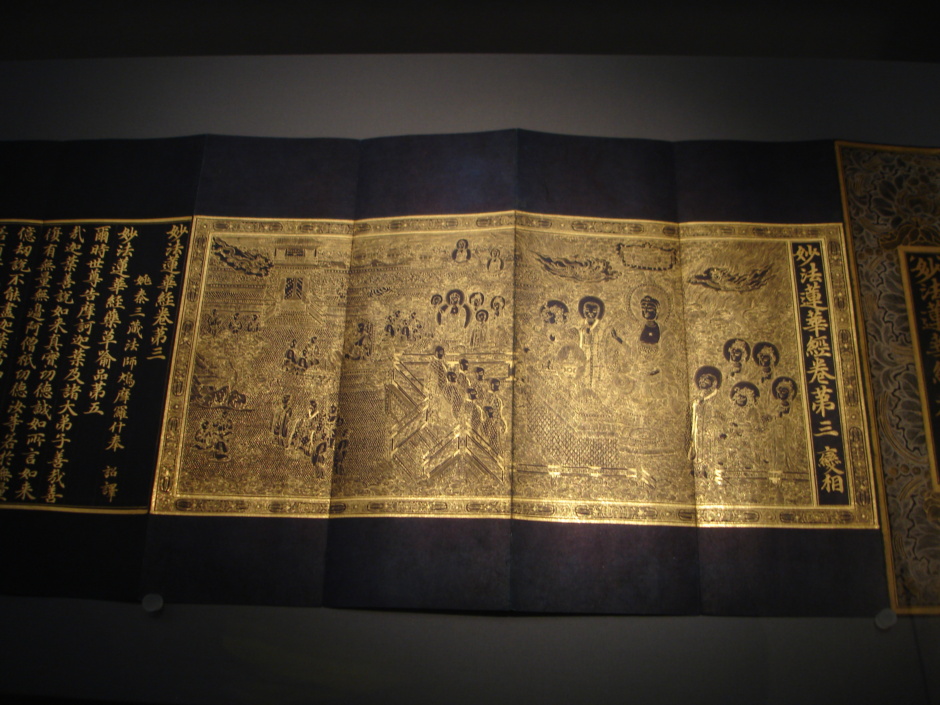 妙法蓮華經
妙法蓮華經卷苐三 變相
妙法蓮華經卷苐三
姚秦三藏法師鳩摩羅什奉 詔譯
妙法蓮華經藥草喻品苐五
爾時世尊告摩訶迦葉及諸大弟子善哉善
哉迦葉善說如来真實功德誠如所言如来
復有無量無邊阿僧祇功德汝等若於無
億劫說不能盡迦葉當